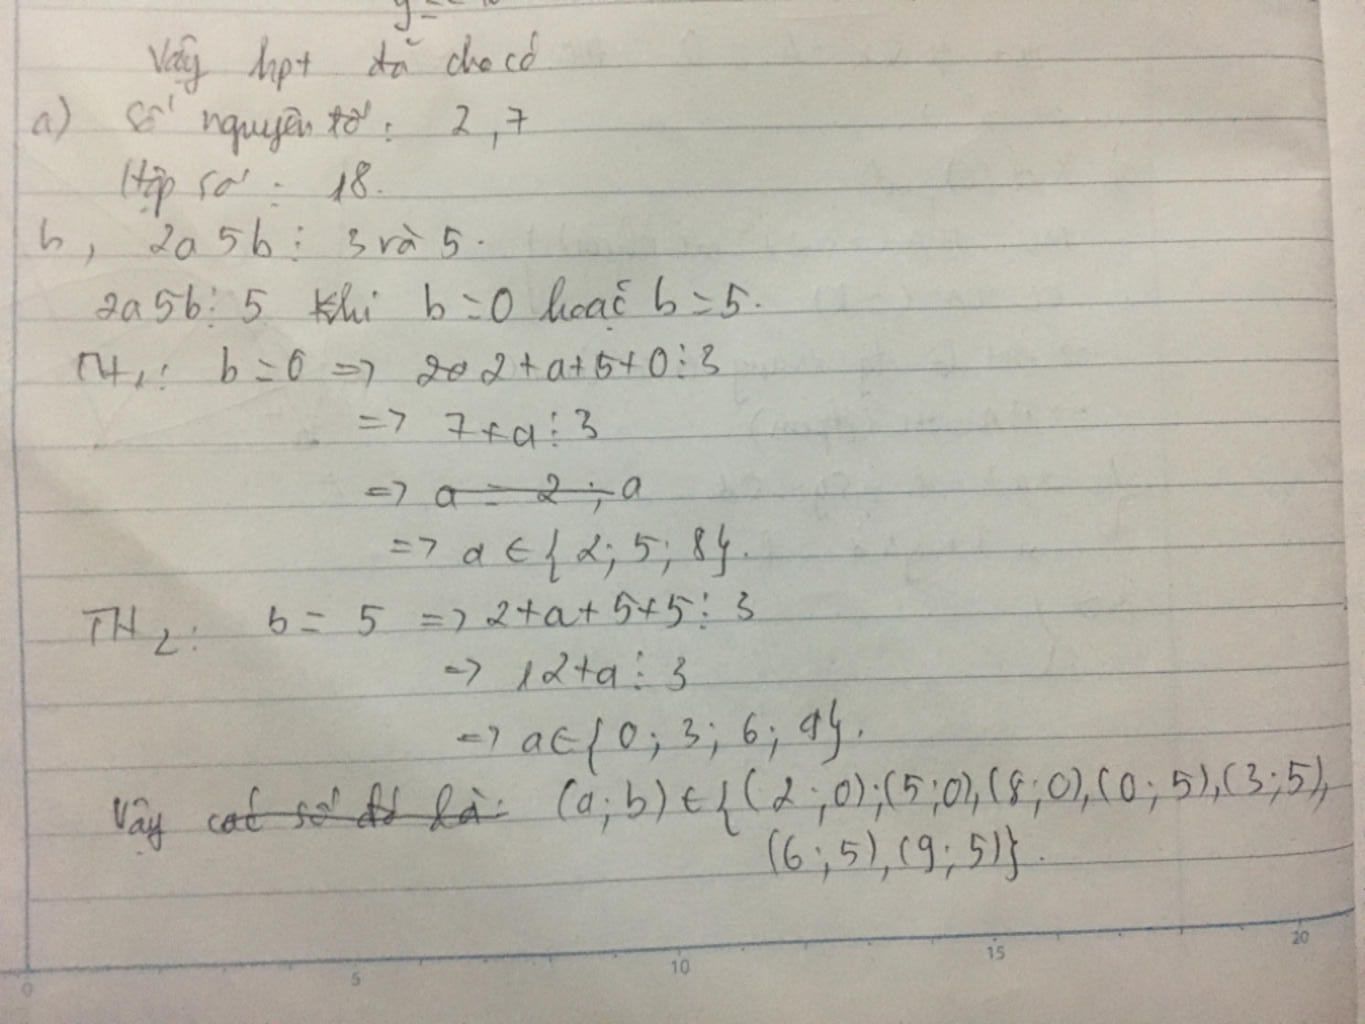 Vậy hpt đã cho có
a) Số nguyên tố: 2, 7
Hợp số: 18.
b, 2a5b ⋮ 3 và 5.
2a5b ⋮ 5 khi b = 0 hoặc b = 5.
TH1: b = 0 => 2+a+5+0 ⋮ 3
=> 7+a ⋮ 3
=> a = 2 ; a
=> a ∈ { 2; 5; 8}.
TH2: b = 5 => 2+a+5+5 ⋮ 3
=> 12+a ⋮ 3
=> a ∈ { 0; 3; 6; 9}.
Vậy các số đó là: (a; b) ∈ { (2; 0); (5; 0), (8; 0), (0; 5), (3; 5),
(6; 5), (9; 5)}.
0 5 10 15 20